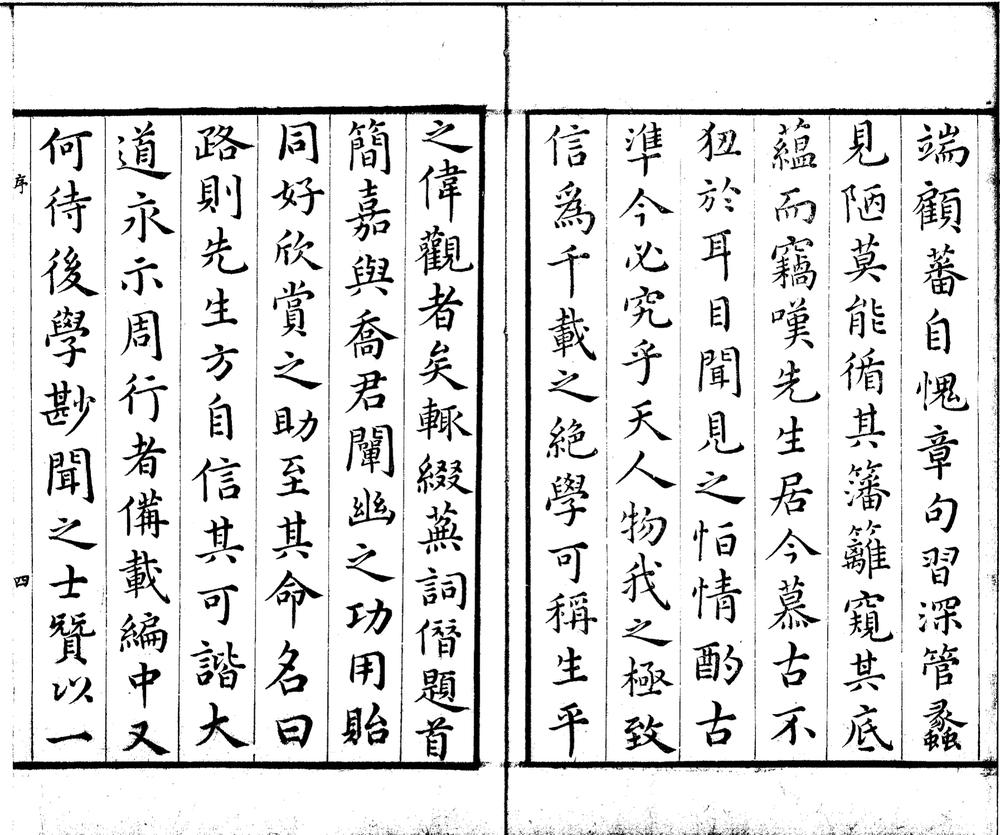 端顧蕃自愧章句習深管蠡
見陋莫能循其籓籬窺其底
蘊而竊嘆先生居今慕古不
狃於耳目聞見之怕情酌古
準今必究乎天人物我之極致
信爲千載之絕學可稱生平
之偉觀者矣輙綴蕪詞僭題首
簡嘉與喬君闡幽之功用貽
同好欣賞之助至其命名曰
路則先生方自信其可諧大
道永示周行者備載編中又
何待後學尠聞之士贅以一
序
四